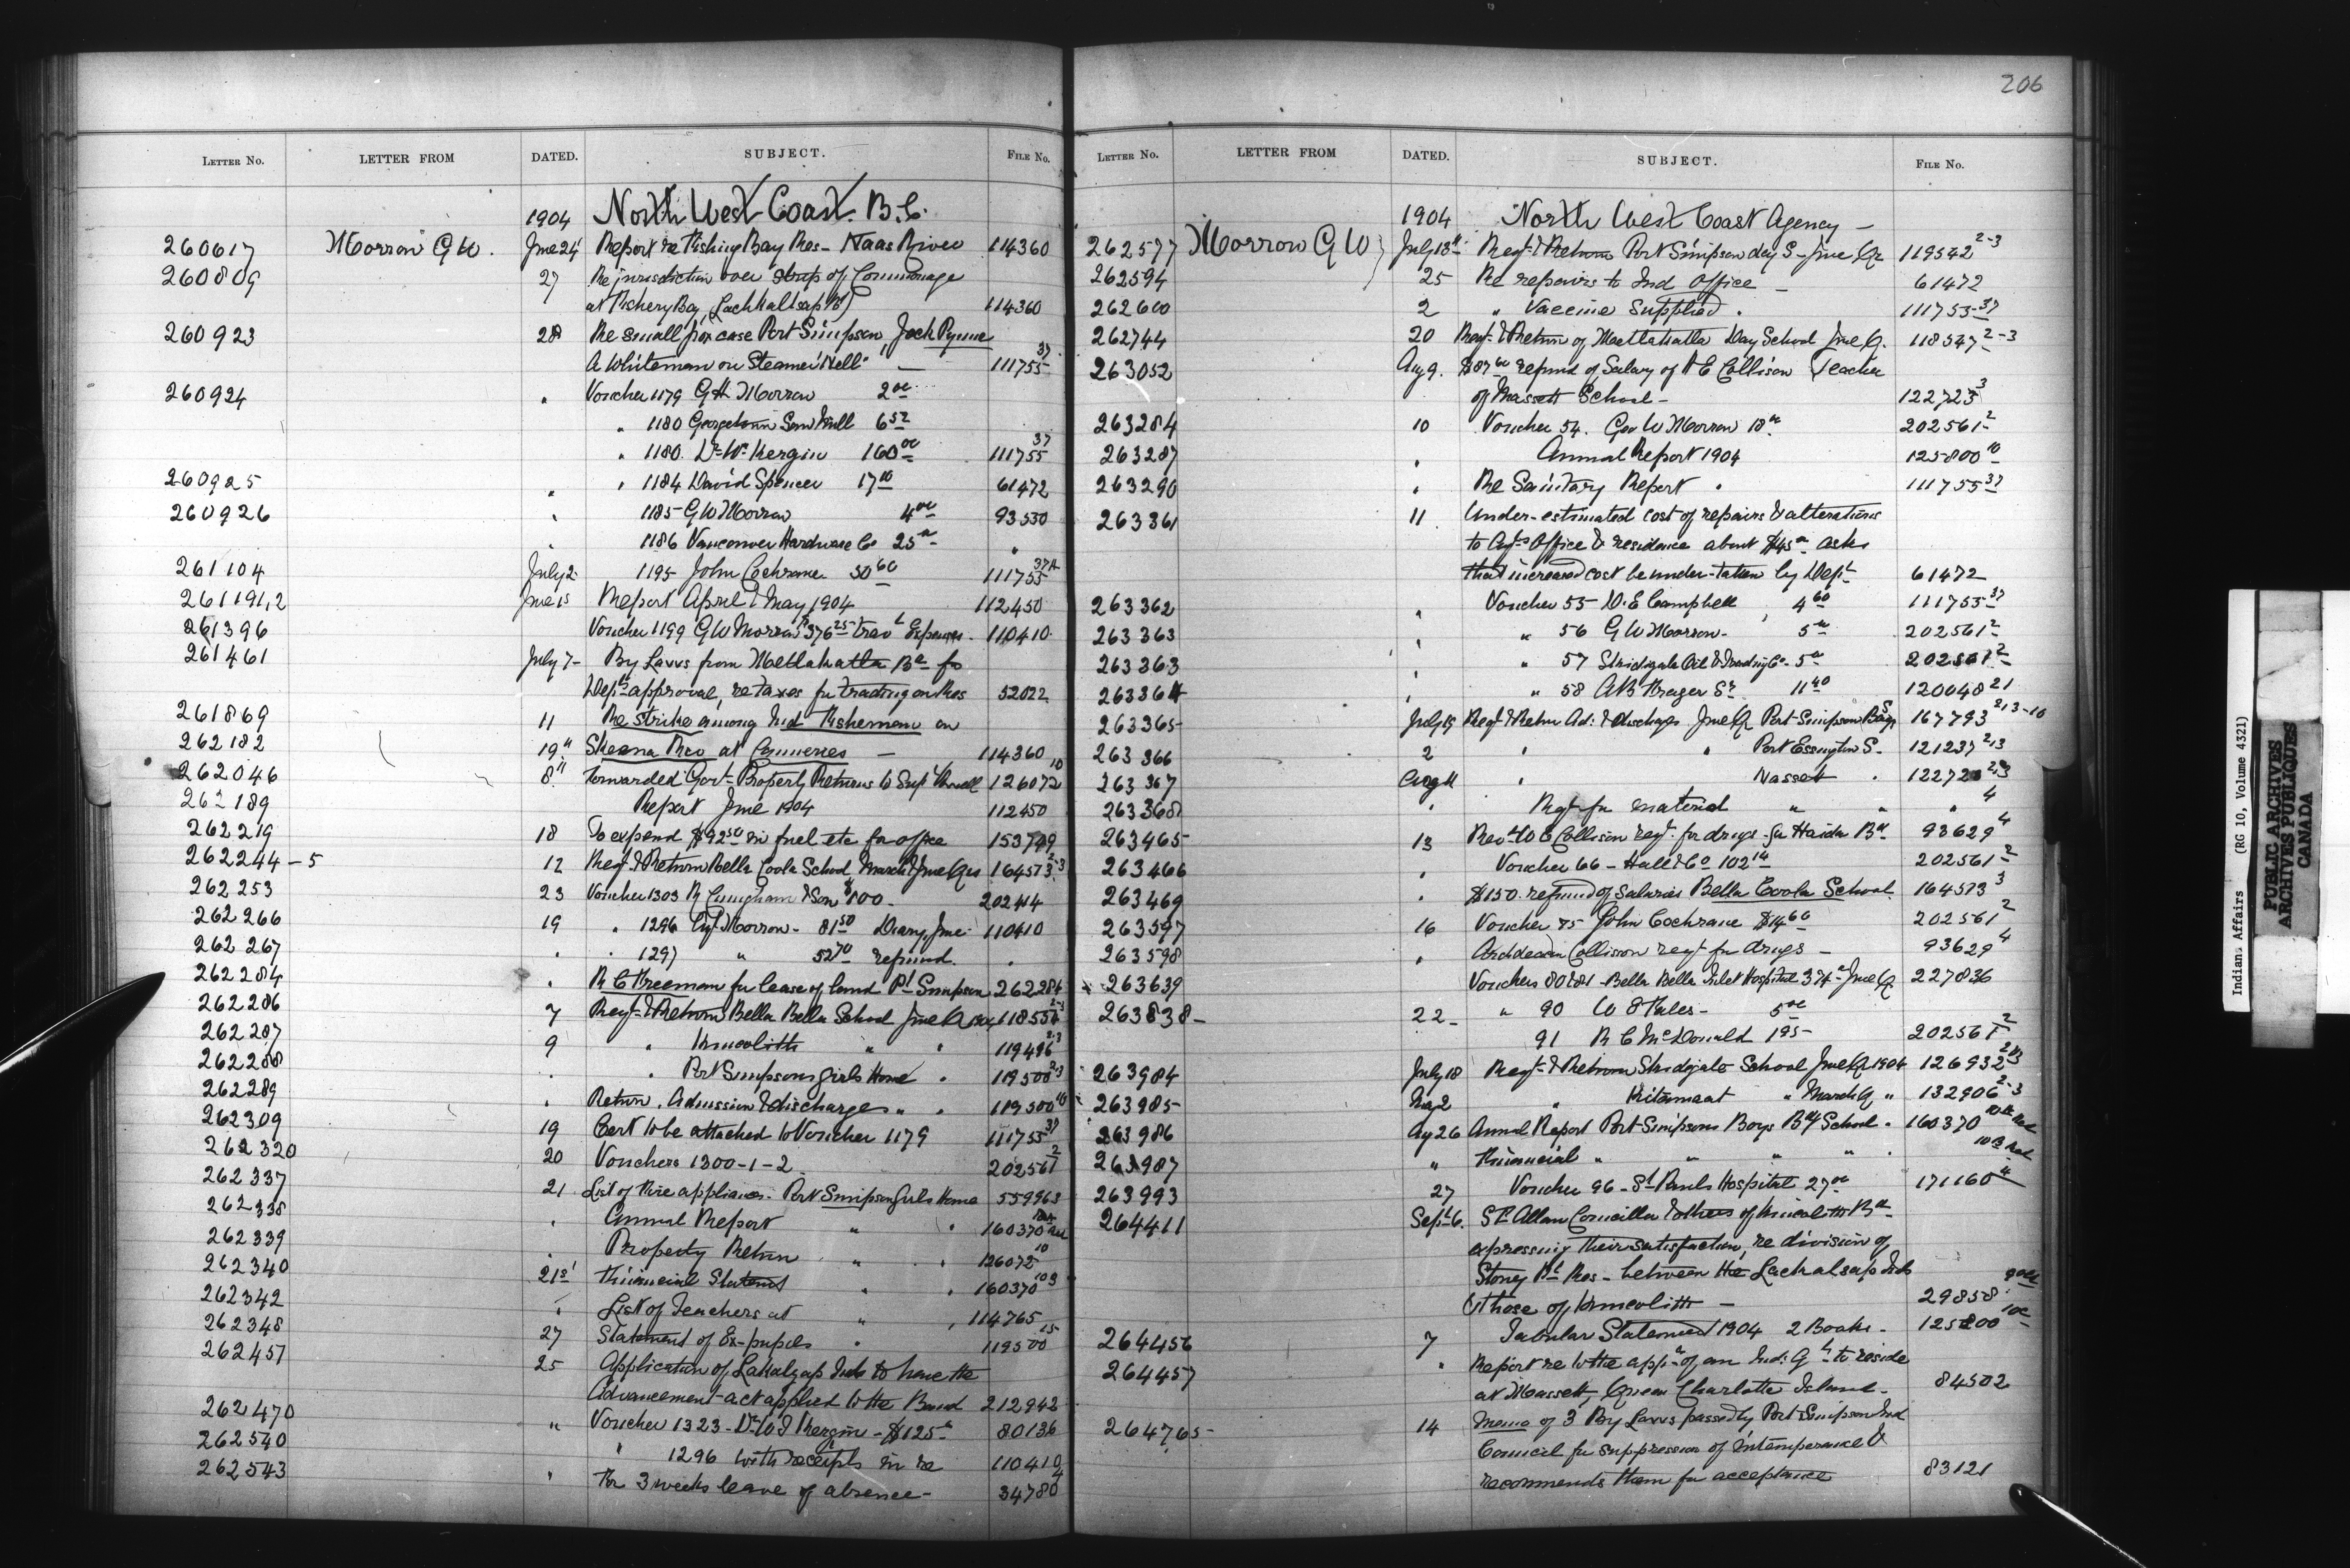 206
LETTER NO. LETTER FROM DATED. SUBJECT. FILE NO.
1904 North West Coast. B.C.
260617 Morrow G W. June 24 Report re Fishing Bay Res - Naas River 114360
260809 27 Re jurisdiction over strip of Commonage
at Fishery Bay, (Lachkaltsap Bd) 114360
260923 28 Re small pox case Port Simpson, Jack Pyme
A Whiteman on Steamer "Nell" — 111755 37
260924 " Voucher 1179 G H Morrow 2 00
" 1180 Georgetown Saw Mill 6 52
" 1180. Dr W. Kergin 160 00 111755 37
260925 " " 1184 David Spencer 17 10 61472
260926 " 1185 G W Morrow 4 00 93530
" 1186 Vancouver Hardware Co 25 "
261104 July 2 1195 John Cochrane 50 60 111755 37A
261191,2 June 15 Report April & May 1904 112450
261396 Voucher 1199 G W Morrow $376 25 Trav L Expenses - 110410
261461 July 7 - By Laws from Metlakatla Bd for
Dept's approval, re taxes for trading on Res 52022
261869 11 Re strike among Ind Fishermen on
262182 19" Skeena Riv at Canneries — 114360
262046 8" Forwarded Govt Property Returns to Supt Vowell 126072 10
262189 Report June 1904 112450
262219 18 To expend $92 50 in fuel etc for office 153749
262244 - 5 12 Reqt & Return Bella Coola School March & June Qrs 164513 2-3
262253 23 Voucher 1303 R Cunningham & Son $100 - 202414
262266 19 " 1296 Agt Morrow - 81 50 Diary June 110410
262267 " " 1297 " 52 70 refund. "
262284 " R C Freeman for lease of land Pt Simpson 262284
262286 7 Reqt & Return Bella Bella School June Q 1904 118554 2-3
262287 9 " Kincolith " " 119496 2-3
262288 " " Port Simpson Girls Home " 119500 2-3
262289 " Return. Admission & discharges " " 119500 10
262309 19 Cert to be attached to Voucher 1179 111755 37
262320 20 Vouchers 1300-1-2 202561 2
262337 21 List of Fire appliances - Port Simpson Girls Home 559963
262338 " Annual Report " " 160370
262339 " Property Return " " 126072 10
262340 21st Financial Statemt " " 160370 10 3
262342 " List of Teachers at " " 114765
262348 27 Statement of Ex-pupils " 119500 15
262457 25 Application of Lakalzap Inds to have the
Advancement act applied to the Band 212942
262470 " Voucher 1323 - Dr W T Kergin - $125 80136
262540 " 1296 with receipts in re 110410
262543 " For 3 weeks leave of absence - 34780 4
LETTER NO. LETTER FROM DATED. SUBJECT. FILE NO.
1904 North West Coast Agency —
262577 Morrow G W July 13" Reqt & Return Port Simpson day S - June Qr 119542 2-3
262594 25 Re repairs to Ind Office — 61472
262600 2 " Vaccine Supplied . 111755-37
262744 20 Reqt & Return of Metlakatla Day School June Q. 118547 2-3
263052 Aug 9. refund of Salary of Collison Teacher
of Massett School - 122723 3
263284 10 Voucher 54. Geo W Morrow 18 202561 2
263287 " Annual Report 1904 125800 10
263290 " Re Sanitary Report . 111755 37
263361 11 Under-estimated cost of repairs & alterations
to Agts Office & residence about $45 asks
that increased cost be under-taken by Dept 61472
263362 " Voucher 55 D. E Campbell 4 60 111755 37
263363 " " 56 G W Morrow - 5 202561 2
263363 " " 57 Skidigate Oil & Trading Co - 5 202561 2
263364 " " 58 A B Krager Sr 11 40 120048 21
263365 July 19 Reqt & Return Ad: & discharges June Q Port Simpson Boys 167793 2,3-10
263366 2 " " Port Essington S - 121237 2,3
263367 Aug 11 " Massett . 122723 2,3
263368 " Reqt for material " " " 4
263465 13 Rev W E Collison reqt. for drugs for Haida Bd 93629 4
263466 " Voucher 66 - Hall & Co 102 14 202561 2
263469 " $150. refund of Salaries Bella Coola School 164513 3
263597 16 Voucher 75 John Cochrane $14 60 202561 2
263598 " Archdeacon Collison reqt for drugs — 93629 4
263639 Vouchers 80 & 81 - Bella Bella Inlet Hospital June Q 227836
263838 - 22 - " 90 5 00
91 R C McDonald 1 95 - 202561 2
263984 July 18 Reqt & Return Skidigate School June Q 1904 126932 2,3
263985 Aug 2 " Kitamaat " March Q " 132906 2-3
263986 Ag 26 Annual Report Port Simpson Boys Bdg School . 160370
263987 " Financial " " " " .
263993 27 Voucher 96 - St Pauls Hospital 27 00 171160 4
264411 Sept 6. St Allan Councillor & others of Kincolith Bd
expressing their satisfaction, re division of
Stoney Pt Res - between the Lachalsap Inds
& those of Kincolith — 29858
264456 7 Tabular Statement 1904 2 Books - 125800
264457 " Report re to the appn of an Ind: G to reside
at Massett, Queen Charlotte Island - 84502
264765 - 14 Memo of 3 By Laws passed by Port Simpson Ind
Council for suppression of intemperance &
recommends them for acceptance 83121
Indian Affairs (RG 10, Volume 4321)
PUBLIC ARCHIVES
ARCHIVES PUBLIQUES
CANADA